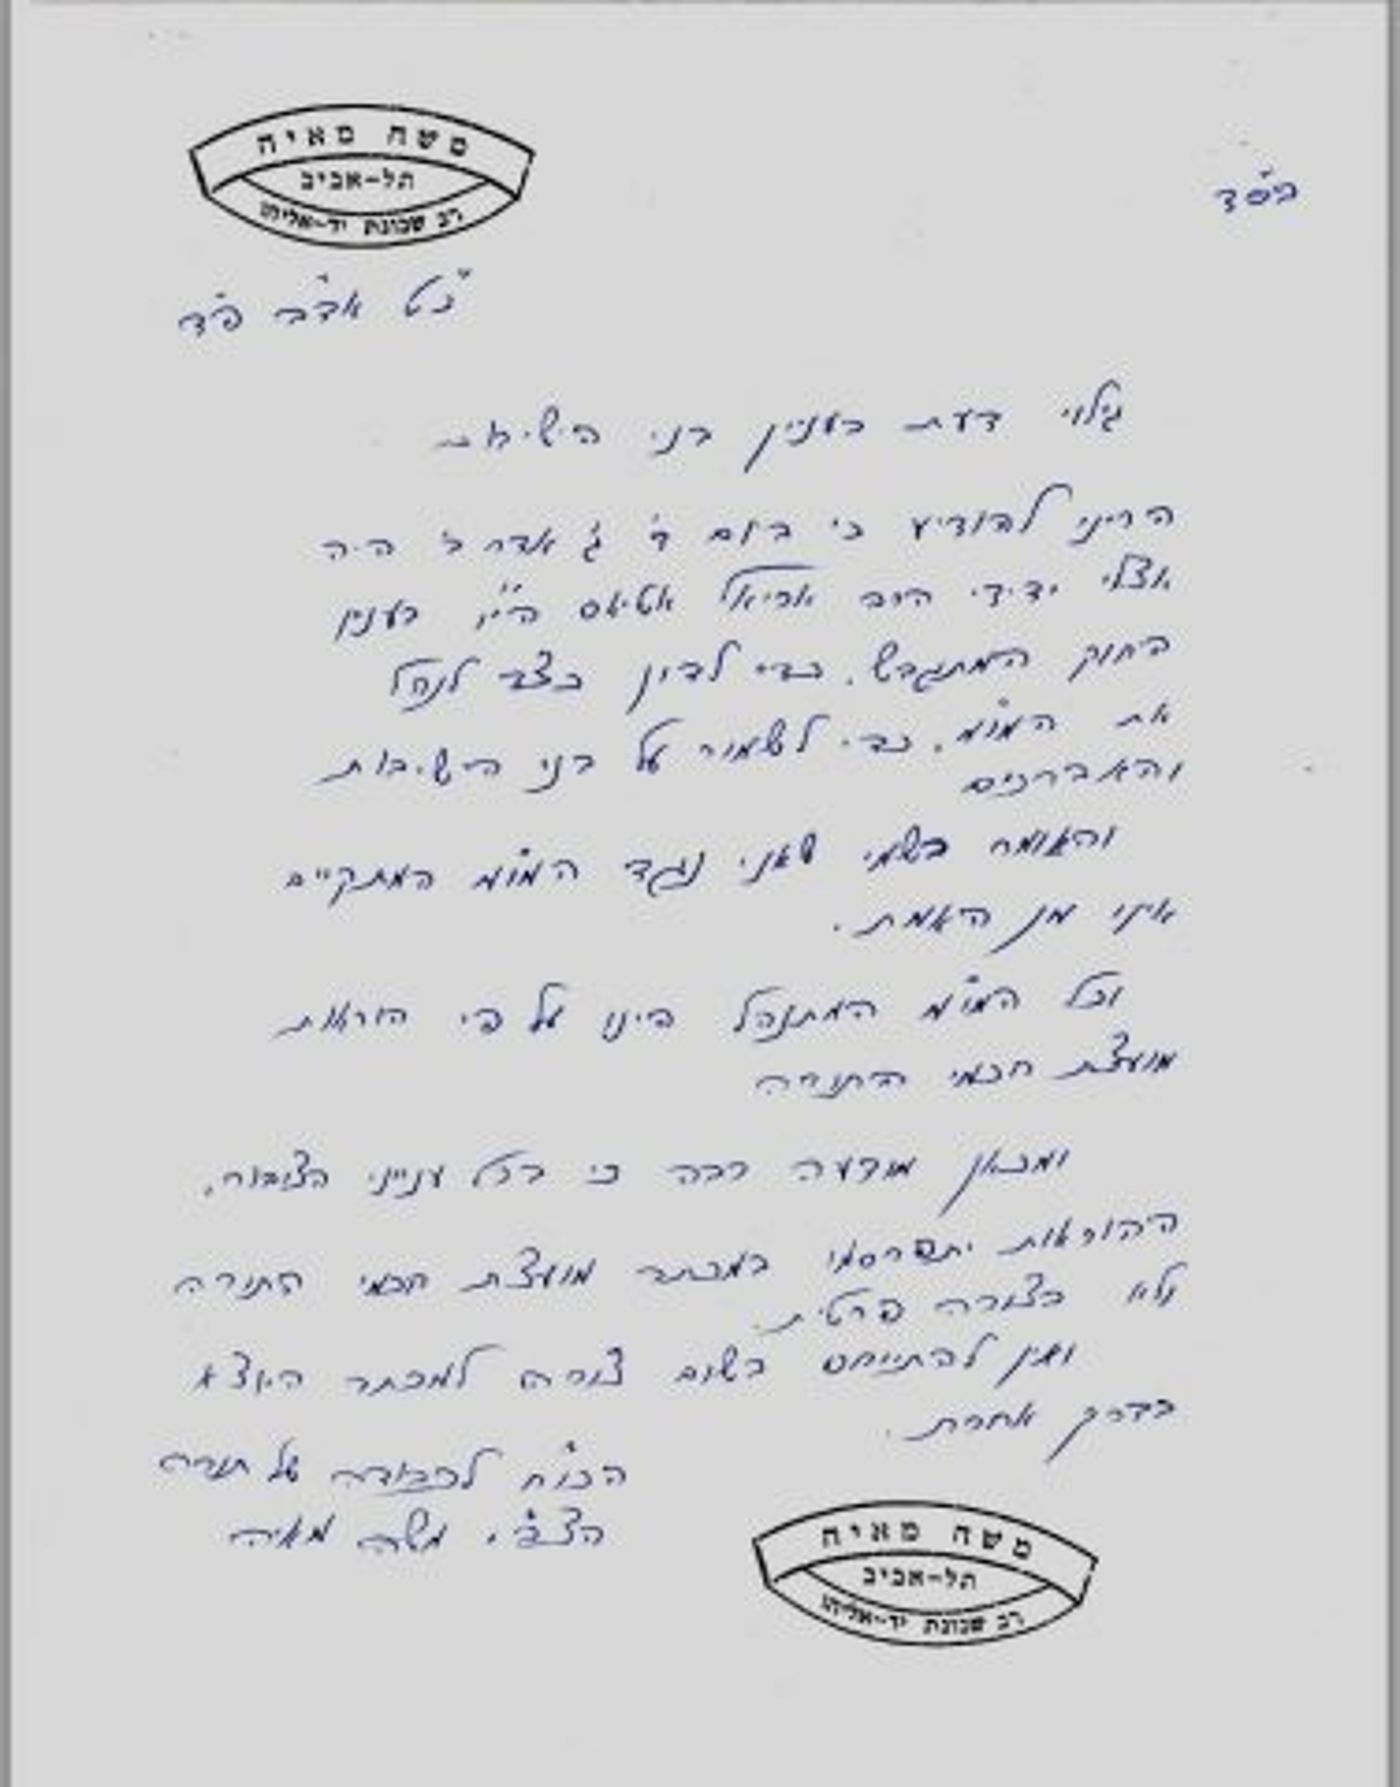 משה מאיה
תל-אביב
רב שכונת יד-אליהו
בס"ד
כ"ט אד"ב פ"ד
גילוי דעת בענין בני הישיבות
הריני להודיע כי ביום ד' ג' אדר ב' היה
אצלי ידידי הרב אריאל אטיאס הי"ו בענין
החוק המתגבש, כדי לדון כצד לנהל
את המו"מ, כדי לשמור על בני הישיבות
והאברכים
והאומר בשמי שאני נגד המו"מ המתקיים
אינו מן האמת.
וכל המו"מ המתנהל הינו על פי הוראות
מועצת חכמי התורה
ומכאן מודעה רבה כי בכל ענייני הציבור,
ההוראות יתפרסמו במכתב מועצת חכמי התורה
ולא בצורה פרטית.
ואין להתייחס בשום צורה למכתב היוצא
בדרך אחרת.
הכו"ח לכבודה של תורה
הצב"י משה מאיה
משה מאיה
תל-אביב
רב שכונת יד-אליהו